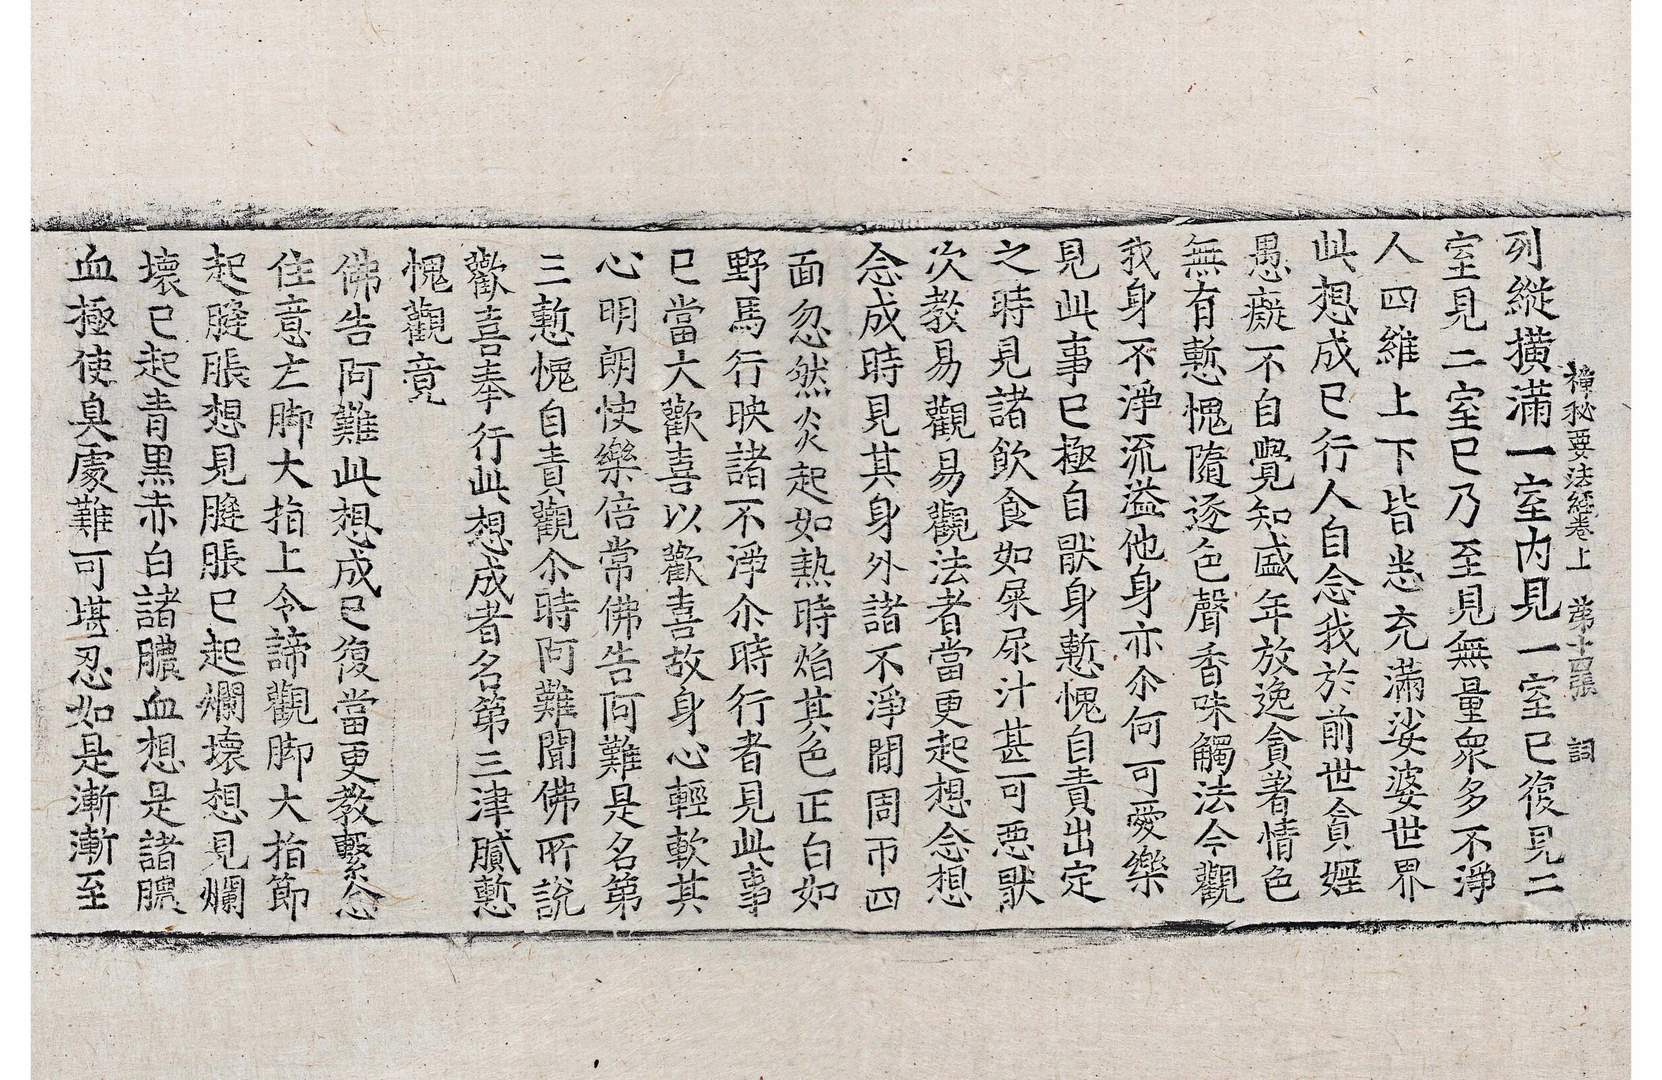 禪秘要法經卷上　第十四張　詞
列縱撗滿一室内見一室已復見二
室見二室已乃至見無量衆多不淨
人四維上下皆悉充滿娑婆世界
此想成已行人自念我於前世貪婬
愚癡不自覺知盛年放逸貪著情色
無有慙愧隨逐色聲香味觸法今觀
我身不淨流溢他身亦尒何可愛樂
見此事已極自猒身慙愧自責出定
之時見諸飲食如屎尿汁甚可惡猒
次教易觀易觀法者當更起想念想
念成時見其身外諸不淨閒周帀四
面忽然炎起如熱時焰其色正白如
野馬行映諸不淨尒時行者見此事
已當大歡喜以歡喜故身心輕軟其
心明朗快樂倍常佛告阿難是名第
三慙愧自責觀尒時阿難聞佛所說
歡喜奉行此想成者名第三津膩慙
愧觀竟
佛告阿難此想成已復當更教繫念
住意左脚大指上令諦觀脚大指節
起膖脹想見膖脹已起爛壞想見爛
壞已起青黑赤白諸膿血想是諸膿
血極使臭處難可堪忍如是漸漸至